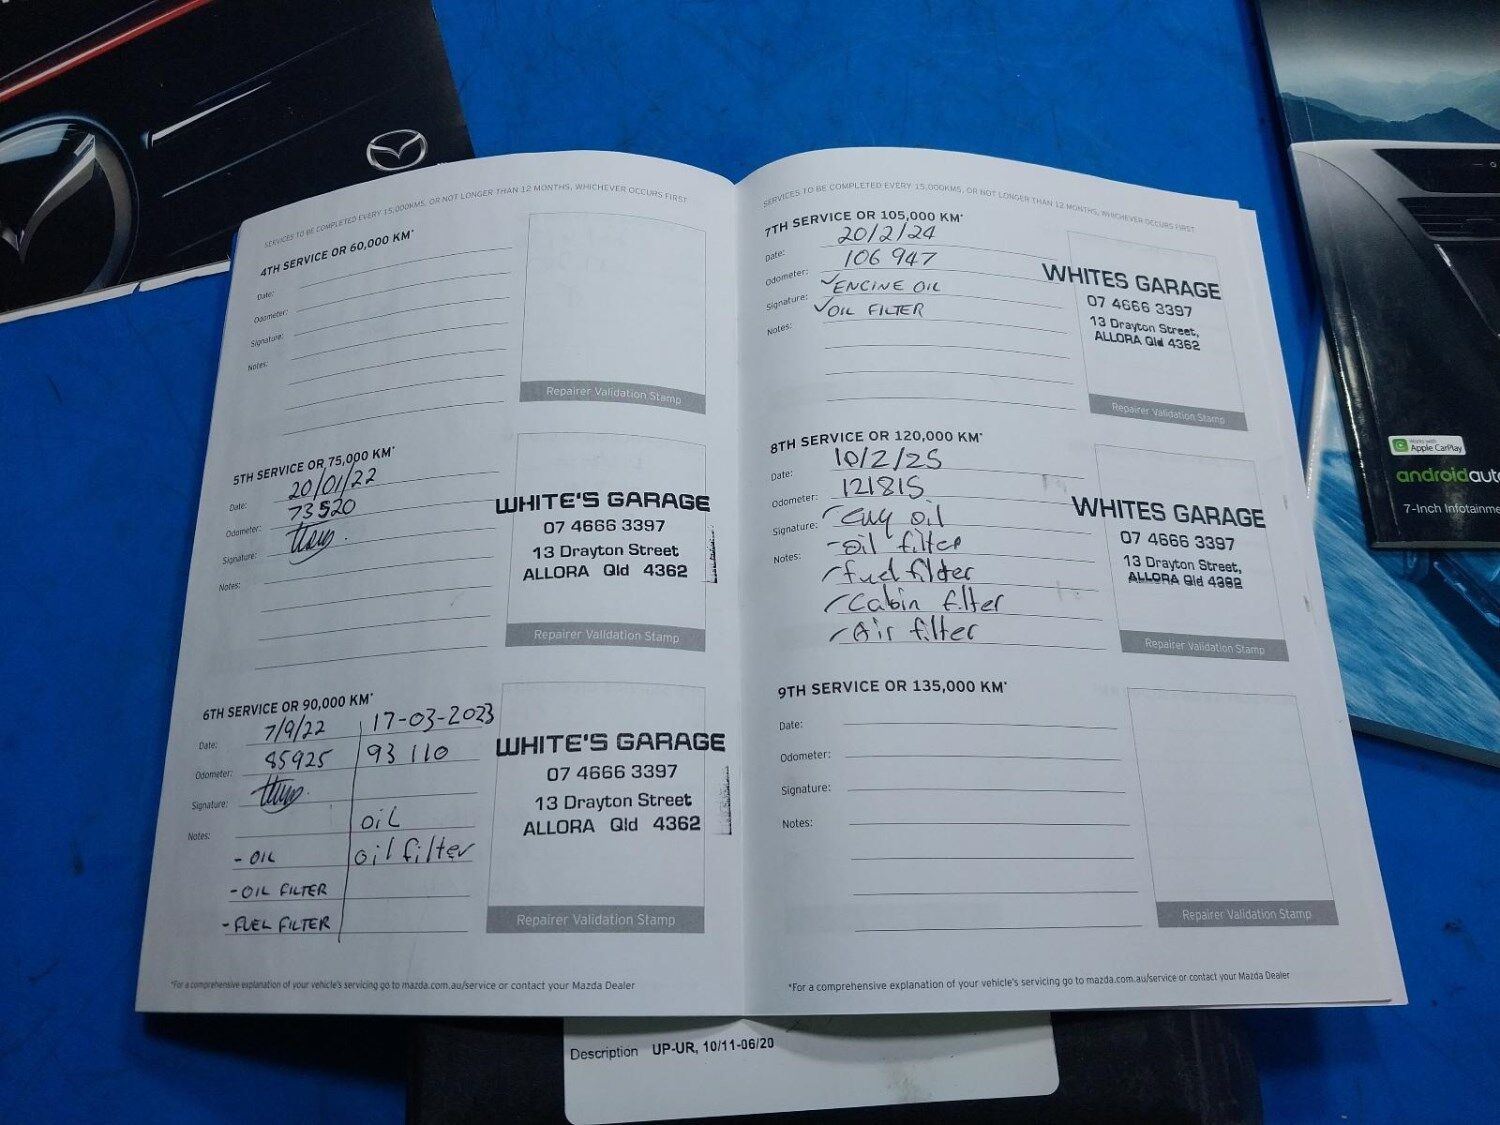 SERVICES TO BE COMPLETED EVERY 15,000KMS, OR NOT LONGER THAN 12 MONTHS, WHICHEVER OCCURS FIRST
4TH SERVICE OR 60,000 KM*
Date:
Odometer:
Signature:
Notes:
Repairer Validation Stamp
5TH SERVICE OR 75,000 KM*
Date: 20/01/22
Odometer: 73520
Signature:
Notes:
WHITE'S GARAGE
07 4666 3397
13 Drayton Street
ALLORA Qld 4362
Repairer Validation Stamp
6TH SERVICE OR 90,000 KM*
Date: 7/9/22 17-03-2023
Odometer: 85925 93 110
Signature:
Notes: oil
- OIL oil filter
- OIL FILTER
- FUEL FILTER
WHITE'S GARAGE
07 4666 3397
13 Drayton Street
ALLORA Qld 4362
Repairer Validation Stamp
*For a comprehensive explanation of your vehicle's servicing go to mazda.com.au/service or contact your Mazda Dealer
SERVICES TO BE COMPLETED EVERY 15,000KMS, OR NOT LONGER THAN 12 MONTHS, WHICHEVER OCCURS FIRST
7TH SERVICE OR 105,000 KM*
Date: 20/2/24
Odometer: 106 947
Signature: ✓ENGINE OIL
Notes: ✓OIL FILTER
WHITES GARAGE
07 4666 3397
13 Drayton Street,
ALLORA Qld 4362
Repairer Validation Stamp
8TH SERVICE OR 120,000 KM*
Date: 10/2/25
Odometer: 121815
Signature: oil
Notes: - oil filter
fuel filter
Cabin filter
Air filter
WHITES GARAGE
07 4666 3397
13 Drayton Street,
ALLORA Qld 4362
Repairer Validation Stamp
9TH SERVICE OR 135,000 KM*
Date:
Odometer:
Signature:
Notes:
Repairer Validation Stamp
*For a comprehensive explanation of your vehicle's servicing go to mazda.com.au/service or contact your Mazda Dealer
Works with
Apple CarPlay
androidauto
7-Inch Infotainme
Description UP-UR, 10/11-06/20